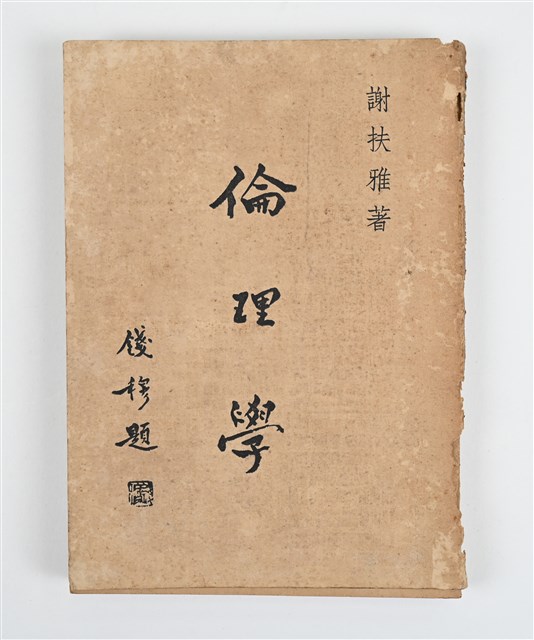 謝扶雅著
倫理學
錢穆題